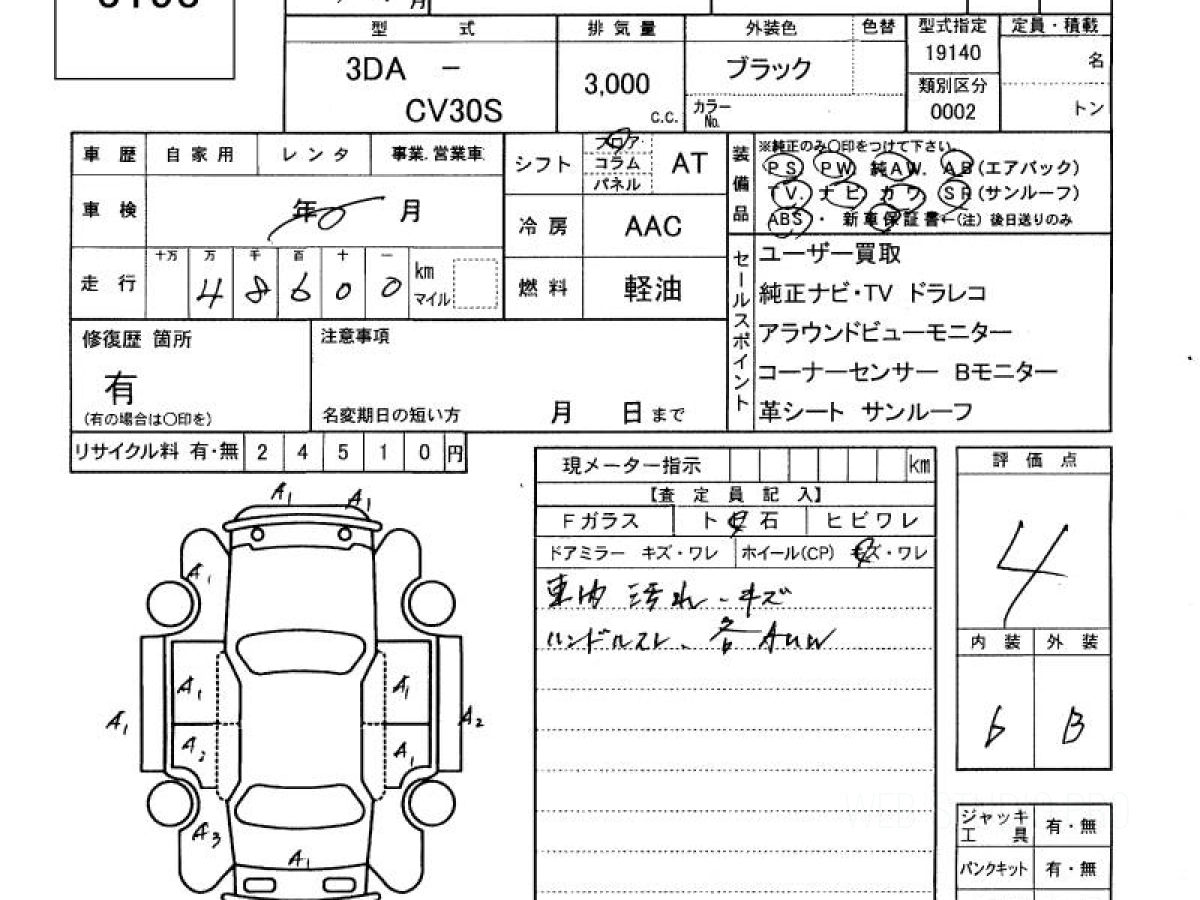 型 式
排 気 量
外装色
色替
型式指定
定員・積載
3DA －
CV30S
3,000
C.C.
ブラック
カラーNo.
19140
類別区分
0002
名
トン
車 歴
自 家 用
レ ン タ
事業.営業車
シフト
フロア
コラム
パネル
AT
装備品
※純正のみ〇印をつけて下さい。
PS PW. 純AW. AB(エアバック)
TV. ナビ カワ SR(サンルーフ)
ABS・ 新車保証書←(注) 後日送りのみ
車 検
年 月
冷 房
AAC
走 行
十万 万 千 百 十 一
4 8 6 0 0
km
マイル
燃 料
軽油
セールスポイント
ユーザー買取
純正ナビ・TV ドラレコ
アラウンドビューモニター
コーナーセンサー Bモニター
革シート サンルーフ
修復歴 箇所
有
(有の場合は〇印を)
注意事項
名変期日の短い方 月 日 まで
リサイクル料 有・無 2 4 5 1 0 円
現メーター指示 km
【査 定 員 記 入】
Fガラス
ト ビ 石
ヒビワレ
ドアミラー キズ・ワレ
ホイール(CP) キズ・ワレ
車内 汚れ・キズ
ハンドルスレ、各AUW
評 価 点
4
内 装
外 装
6
B
A1
A1
A1
A1
A1
A1
A2
A2
A1
A3
A1
ジャッキ
工 具
有・無
パンクキット
有・無